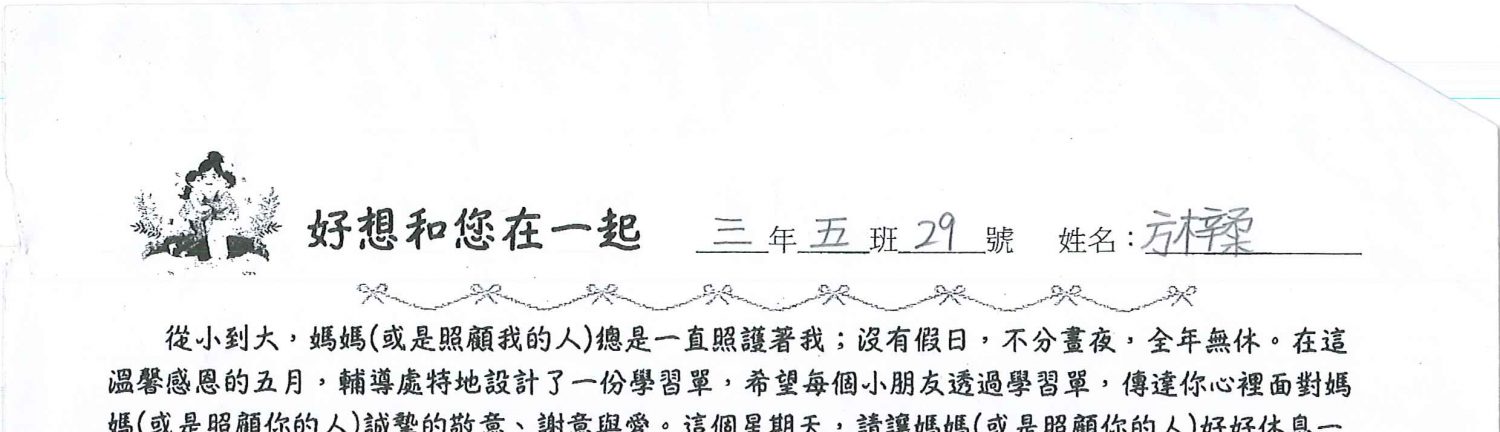 好想和您在一起 三年五班29號 姓名：方梓柔
從小到大，媽媽(或是照顧我的人)總是一直照護著我；沒有假日，不分晝夜，全年無休。在這
溫馨感恩的五月，輔導處特地設計了一份學習單，希望每個小朋友透過學習單，傳達你心裡面對媽
媽(或是照顧你的人)誠摯的敬意、謝意與愛。這個星期天，請讓媽媽(或是照顧你的人)好好休息一